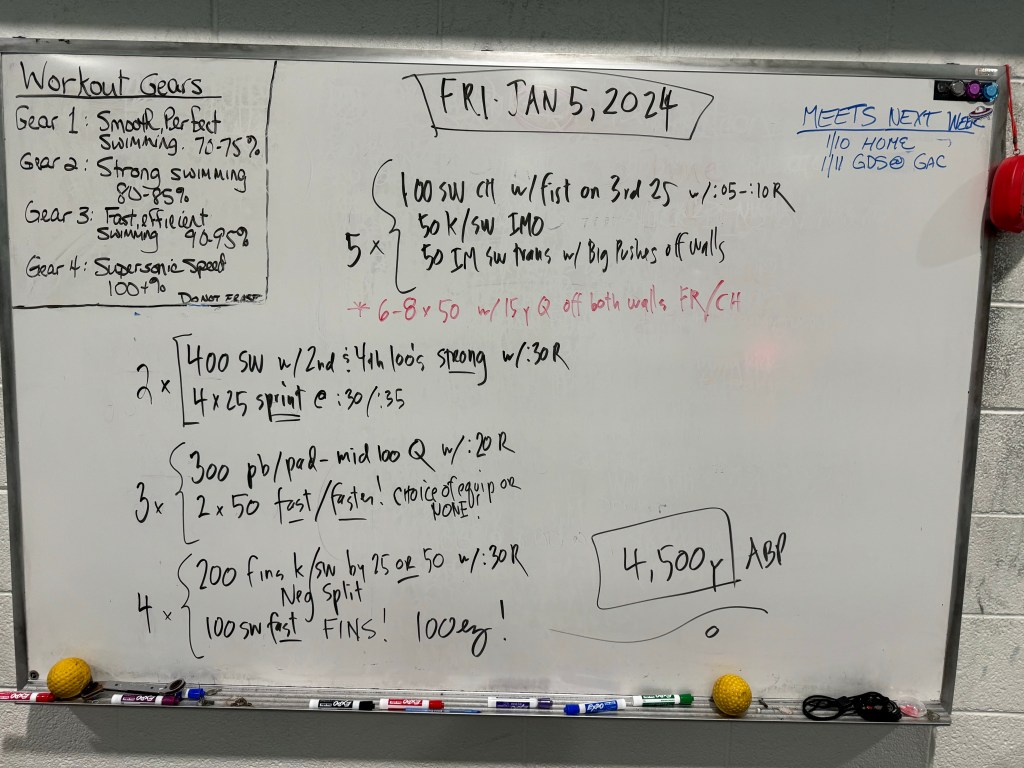 Workout Gears
Gear 1: Smooth, Perfect
Swimming. 70-75%
Gear 2: Strong swimming
80-85%
Gear 3: Fast, efficient
Swimming 90-95%
Gear 4: Supersonic Speed
100+%
DO NOT ERASE
FRI. JAN 5, 2024
MEETS NEXT WEEK
1/10 HOME
1/11 GDS @ GAC
5 x
100 SW CH w/fist on 3rd 25 w/:05-:10R
50 k/sw IMO
50 IM sw trans w/ Big Pushes off walls
* 6-8 x 50 w/15y Q off both walls FR/CH
2 x
400 SW w/2nd & 4th 100's strong w/:30R
4 x 25 sprint @ :30/:35
3 x
300 pb/pad - mid 100 Q w/:20R
2 x 50 fast/faster! choice of equip or
NONE!
4 x
200 fins k/sw by 25 or 50 w/:30R
Neg Split
100 sw fast FINS! 100 ez!
4,500y ABP
EXPO